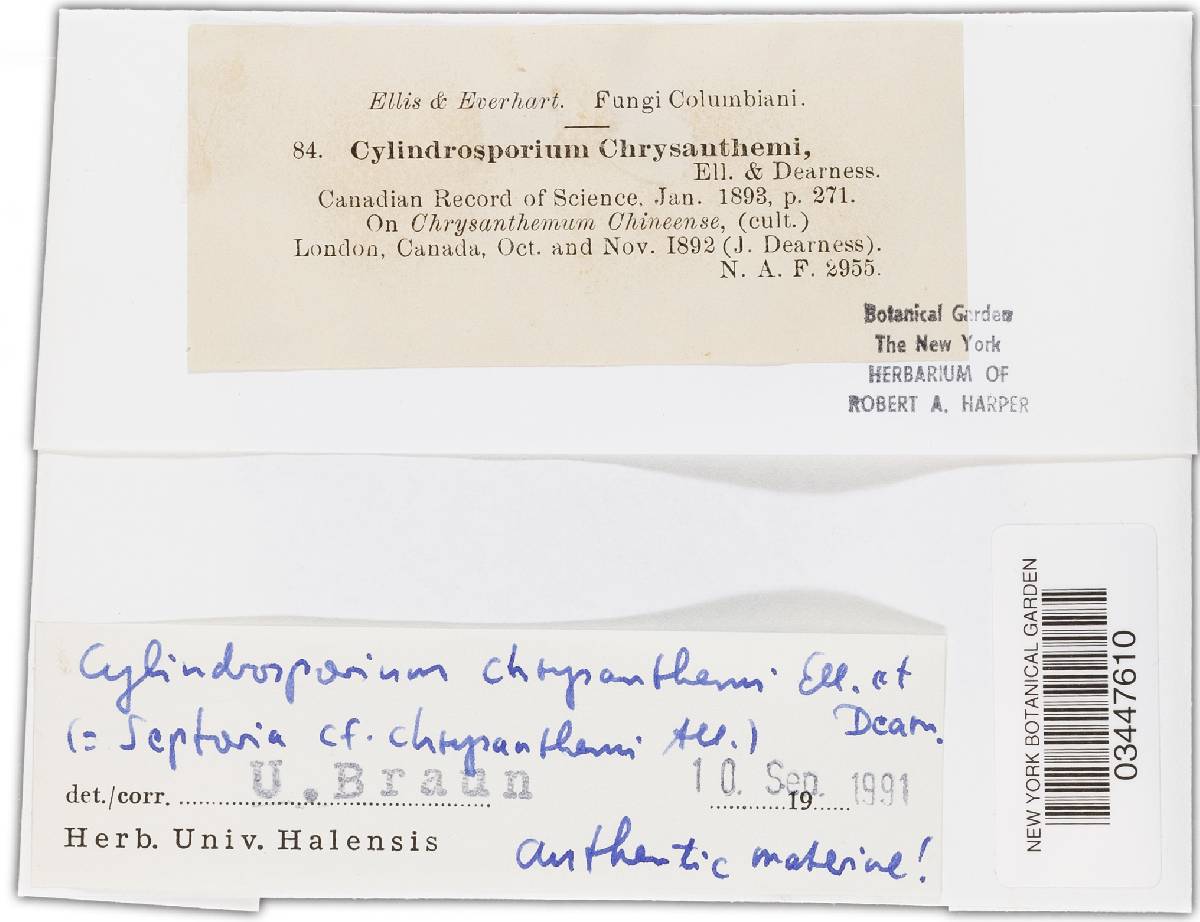 Ellis & Everhart. Fungi Columbiani.
84. Cylindrosporium Chrysanthemi,
Ell. & Dearness.
Canadian Record of Science, Jan. 1893, p. 271.
On Chrysanthemum Chineense, (cult.)
London, Canada, Oct. and Nov. 1892 (J. Dearness).
N. A. F. 2955.
Botanical Garden
The New York
HERBARIUM OF
ROBERT A. HARPER
NEW YORK BOTANICAL GARDEN
03447610
Cylindrosporium chrysanthemi Ell. et
Dearn.
(= Septoria cf. chrysanthemi All.)
U. Braun 10. Sep. 1991
det./corr. 19
Herb. Univ. Halensis
authentic material!